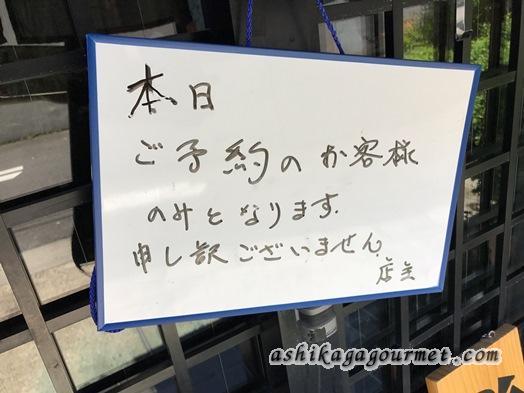 本日
ご予約のお客様
のみとなります.
申し訳ございません
店主
ashikagagourmet.com